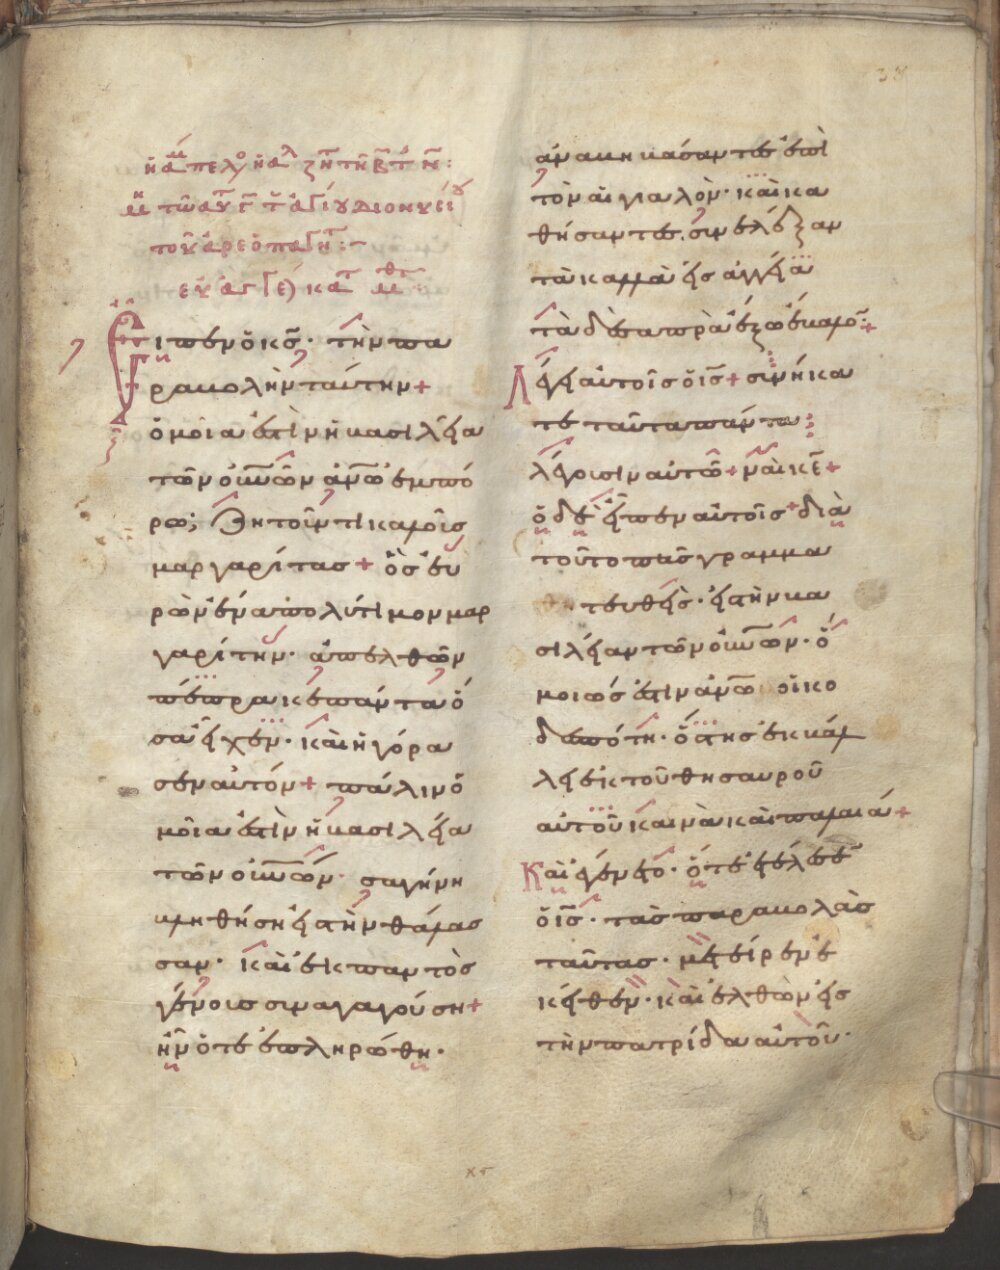 τοῦ ἀρεοπαγίτ:~
εὐαγγε κατ Μθ
Εἶπεν ὁ κς· τὴν πα
ραβολὴν ταύτην+
ὁμοία ἐστὶν ἡ βασιλεία
τῶν οὐνῶν ἀνω ἐμπό
ρω; ζητοῦντι καλοῖς
μαργαρίτας+ ὃς εὑ
ρὼν ἕνα πολύτιμον μαρ
γαρίτην· ἀπελθὼν
πέπρακε πάντα ὅ
σα εἶχεν· καὶ ἠγόρα
σεν αὐτόν+ πάλιν ὁ
μοία ἐστὶν ἡ βασιλεία
τῶν οὐνῶν· σαγήνη
βληθήση εἰς τὴν θάλασ
σαν· καὶ ἐκ παντὸς
γένοις συναγαγούση+
ἣν ὅτε ἐπληρώθη·
ἀναβηβάσαντες ἐπὶ
τὸν αἰγιαλὸν· καὶ κα
θήσαντες· συνέλεξαν
τὰ καλὰ εἰς ἀγγεῖα
τὰ δὲ σαπρὰ ἔξω ἔβαλον:+
Λέγει αὐτοῖς ὁ ις+ συνήκα
τε ταῦτα πάντα
λέγουσιν αὐτῶ+ ναὶ κε+
ὁ δὲ εἶπεν αὐτοῖς+ διὰ
τοῦτο πᾶς γραμμα
τευθεὶς· εἰς τὴν βα
σιλείαν τῶν οὐνῶν· ὅ
μοιώς ἐστιν ἀνω οἰκο
δεσπότη· ὅστης ἐκβάλ
λει ἐκ τοῦ θησαυροῦ
αὐτοῦ καινὰ καὶ παλαιά+
Καὶ ἐγένετο· ὅτε ἐτέλεσεν
ὁ ις· τὰς παραβολὰς
ταύτας· μετείρεν ἐ
κεῖθεν· καὶ ἐλθὼν εἰς
τὴν πατρίδα αὐτοῦ·